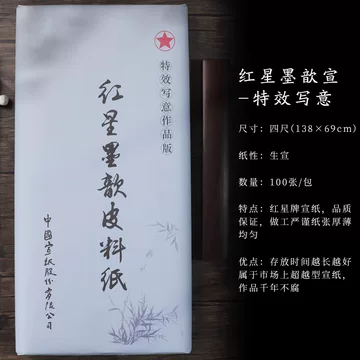 特效写意作品版
红星墨歆皮料纸
中国宣纸股份有限公司
红星墨歆宣
-特效写意
尺寸：四尺(138×69cm)
纸性：生宣
数量：100张/包
特点：红星牌宣纸，品质
保证，做工严谨纸张厚薄
均匀
优点：存放时间越长越好
属于市场上超越型宣纸，
作品千年不腐